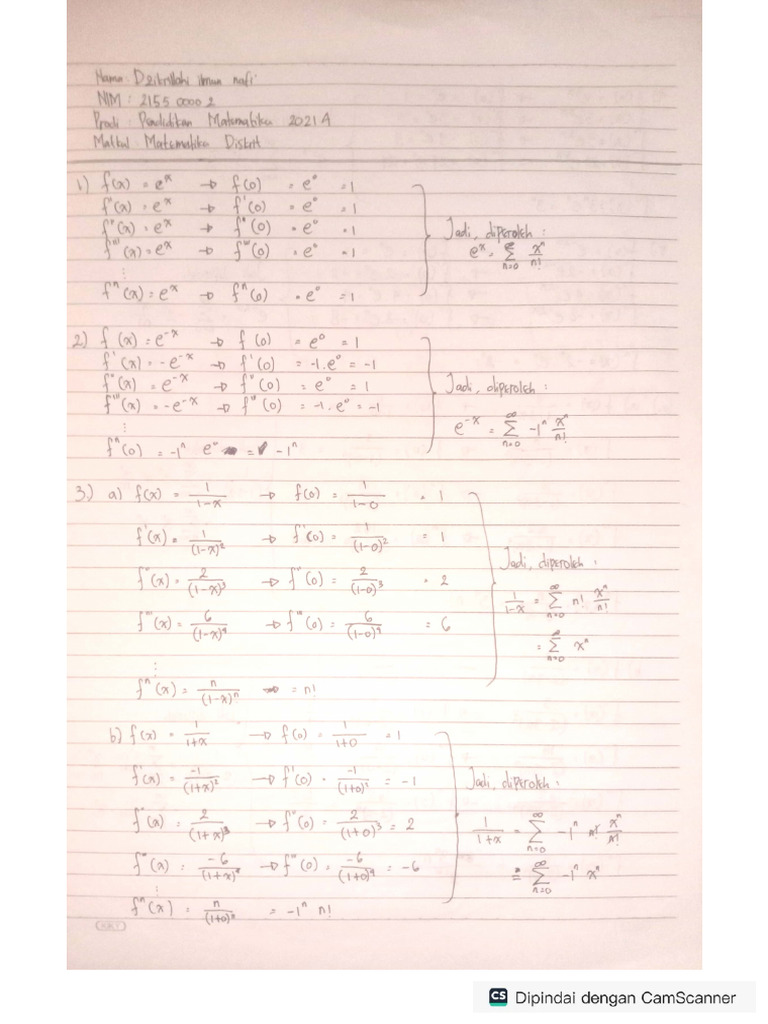 Nama : Dzikrillahi ibnun nafi'
NIM : 2155 0000 2
Prodi : Pendidikan Matematika 2021 A
Matkul Matematika Diskrit
1) f(x) = eˣ → f(0) = e⁰ = 1
f'(x) = eˣ → f'(0) = e⁰ = 1
f''(x) = eˣ → f''(0) = e⁰ = 1
f'''(x) = eˣ → f'''(0) = e⁰ = 1
⋮
fⁿ(x) = eˣ → fⁿ(0) = e⁰ = 1
Jadi, diperoleh :
eˣ = ∑_{n=0}^{∞} xⁿ/n!
2) f(x) = e⁻ˣ → f(0) = e⁰ = 1
f'(x) = -e⁻ˣ → f'(0) = -1.e⁰ = -1
f''(x) = e⁻ˣ → f''(0) = e⁰ = 1
f'''(x) = -e⁻ˣ → f'''(0) = -1.e⁰ = -1
⋮
fⁿ(0) = -1ⁿ e⁰ = -1ⁿ
Jadi, diperoleh :
e⁻ˣ = ∑_{n=0}^{∞} -1ⁿ xⁿ/n!
3.) a) f(x) = 1/(1-x) → f(0) = 1/(1-0) = 1
f'(x) = 1/(1-x)² → f'(0) = 1/(1-0)² = 1
f''(x) = 2/(1-x)³ → f''(0) = 2/(1-0)³ = 2
f'''(x) = 6/(1-x)⁴ → f'''(0) = 6/(1-0)⁴ = 6
⋮
fⁿ(x) = n/(1-x)ⁿ = n!
Jadi, diperoleh :
1/(1-x) = ∑_{n=0}^{∞} n! xⁿ/n!
= ∑_{n=0}^{∞} xⁿ
b) f(x) = 1/(1+x) → f(0) = 1/(1+0) = 1
f'(x) = -1/(1+x)² → f'(0) = -1/(1+0)² = -1
f''(x) = 2/(1+x)³ → f''(0) = 2/(1+0)³ = 2
f'''(x) = -6/(1+x)⁴ → f'''(0) = -6/(1+0)⁴ = -6
⋮
fⁿ(x) = n/(1+0)ⁿ = -1ⁿ n!
Jadi, diperoleh :
1/(1+x) = ∑_{n=0}^{∞} -1ⁿ n! xⁿ/n!
= ∑_{n=0}^{∞} -1ⁿ xⁿ
CS Dipindai dengan CamScanner